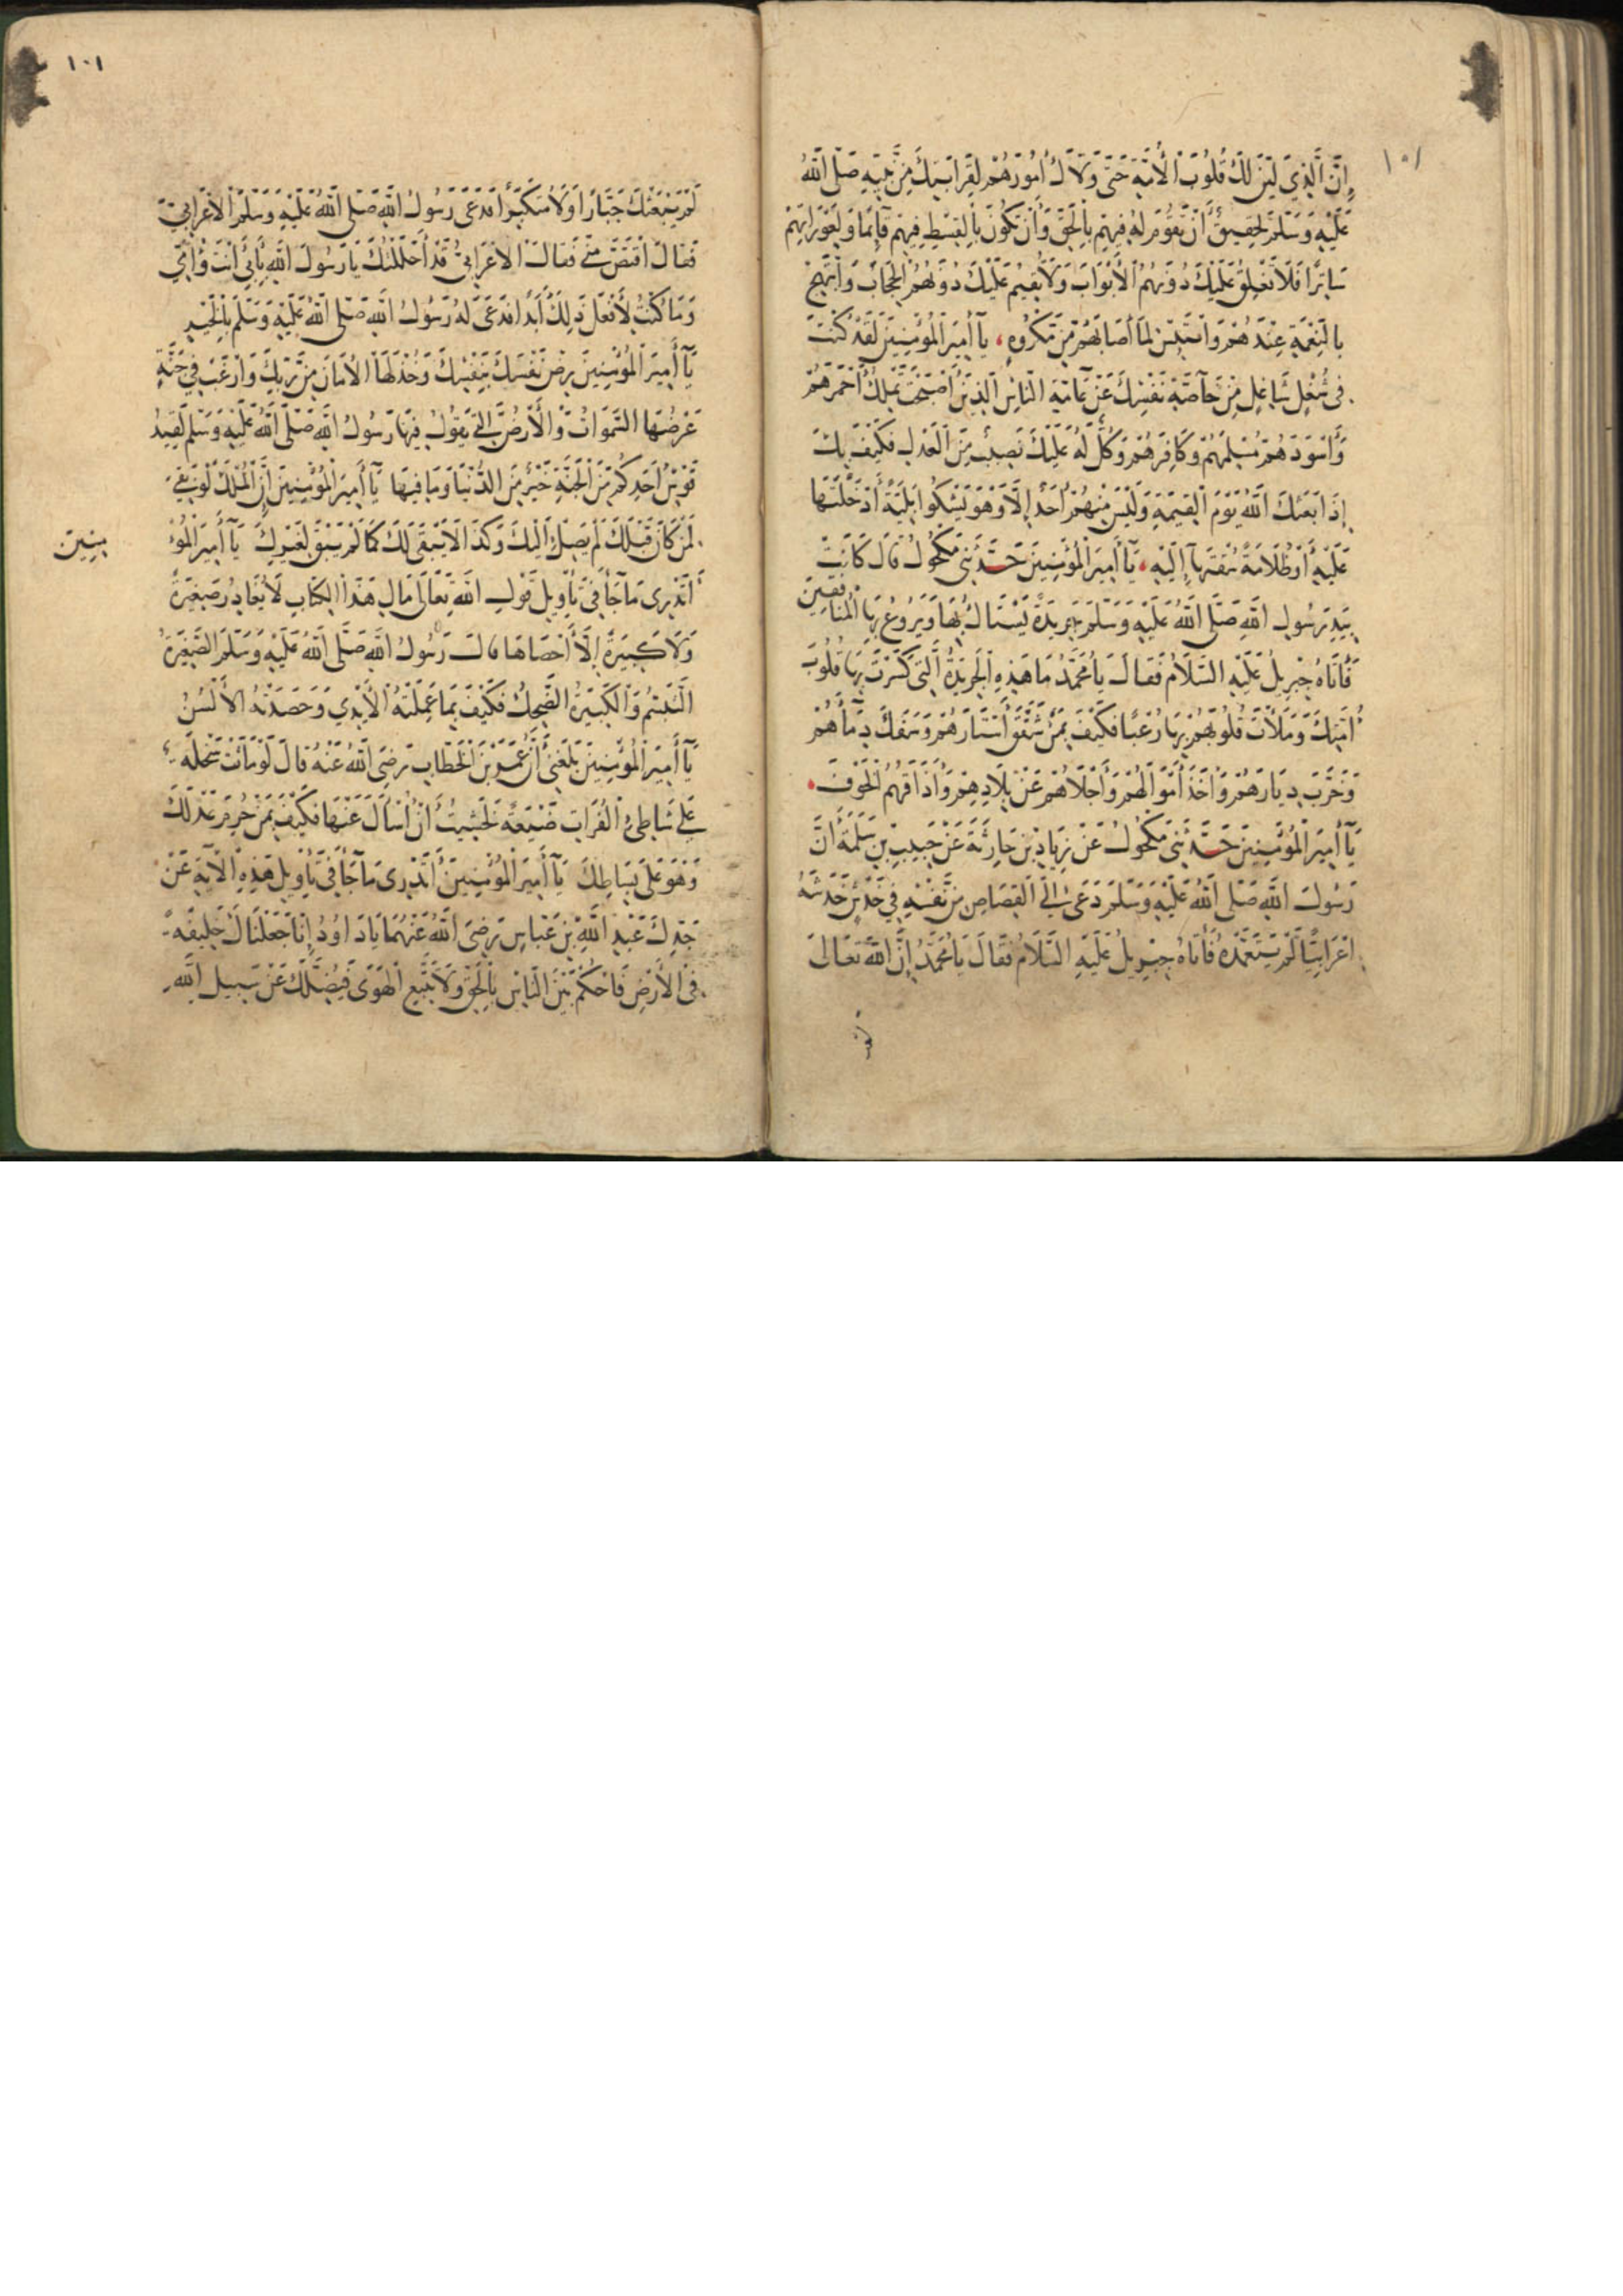 ١٠١
إِنَّ الَّذِي لَيَّنَ لَكَ قُلُوبَ الْأُمَّةِ حَتَّى وَلَّاكَ أُمُورَهُمْ لِقَرَابَتِكَ مِنْ نَبِيِّهِ صَلَّى اللَّهُ
عَلَيْهِ وَسَلَّمَ لَحَقِيقٌ أَنْ تَقُومَ لَهُ فِيهِمْ بِالْحَقِّ وَأَنْ تَكُونَ بِالْقِسْطِ فِيهِمْ قَائِمًا وَلِعَوْرَاتِهِمْ
سَاتِرًا فَلَا تُغْلِقُ عَلَيْكَ دُونَهُمُ الْأَبْوَابَ وَلَا تُقِيمُ عَلَيْكَ دُونَهُمُ الْحِجَابَ وَابْتَهِجْ
بِالنِّعْمَةِ عِنْدَهُمْ وَابْتَئِسْ لِمَا أَصَابَهُمْ مِنْ مَكْرُوهٍ، يَا أَمِيرَ الْمُؤْمِنِينَ لَقَدْ كُنْتَ
فِي شُغْلٍ شَاغِلٍ مِنْ خَاصَّةِ نَفْسِكَ عَنْ عَامَّةِ النَّاسِ الَّذِينَ أَصْبَحْتَ تَمْلِكُ أَحْمَرَهُمْ
وَأَسْوَدَهُمْ مُسْلِمَهُمْ وَكَافِرَهُمْ وَكُلٌّ لَهُ عَلَيْكَ نَصِيبٌ مِنَ الْعَدْلِ فَكَيْفَ بِكَ
إِذَا بَعَثَكَ اللَّهُ يَوْمَ الْقِيمَةِ وَلَيْسَ مِنْهُمْ أَحَدٌ إِلَّا وَهُوَ يَشْكُوا بَلِيَّةً أَدْخَلْتَهَا
عَلَيْهِ أَوْ ظُلَامَةً سُقْتَهَا إِلَيْهِ، يَا أَمِيرَ الْمُؤْمِنِينَ حَدَّثَنِي مَكْحُولٌ قَالَ كَانَتْ
بِيَدِ رَسُولِ اللَّهِ صَلَّى اللَّهُ عَلَيْهِ وَسَلَّمَ جَرِيدَةٌ يَسْتَاكُ بِهَا وَيُرَوِّعُ بِهَا الْمُنَافِقِينَ
فَأَتَاهُ جِبْرِيلُ عَلَيْهِ السَّلَامُ فَقَالَ يَا مُحَمَّدُ مَا هَذِهِ الْجَرِيدَةُ الَّتِي كَسَرْتَ بِهَا قُلُوبَ
أُمَّتِكَ وَمَلَأْتَ قُلُوبَهُمْ بِهَا رُعْبًا فَكَيْفَ بِمَنْ شَقَّقَ أَسْتَارَهُمْ وَسَفَكَ دِمَاءَهُمْ
وَخَرَّبَ دِيَارَهُمْ وَأَخَذَ أَمْوَالَهُمْ وَأَجْلَاهُمْ عَنْ بِلَادِهِمْ وَأَذَاقَهُمُ الْخَوْفَ،
يَا أَمِيرَ الْمُؤْمِنِينَ حَدَّثَنِي مَكْحُولٌ عَنْ زِيَادِ بْنِ جَارِيَةَ عَنْ حَبِيبِ بْنِ سَلَمَةَ أَنَّ
رَسُولَ اللَّهِ صَلَّى اللَّهُ عَلَيْهِ وَسَلَّمَ دَعَى إِلَى الْقِصَاصِ مِنْ نَفْسِهِ فِي خَدْشٍ خَدَشَهُ
أَعْرَابِيًّا لَمْ يَتَعَمَّدْهُ فَأَتَاهُ جِبْرِيلُ عَلَيْهِ السَّلَامُ فَقَالَ يَا مُحَمَّدُ إِنَّ اللَّهَ تَعَالَى
لم
١٠١
لَمْ يَبْعَثْكَ جَبَّارًا وَلَا مُتَكَبِّرًا فَدَعَى رَسُولُ اللَّهِ صَلَّى اللَّهُ عَلَيْهِ وَسَلَّمَ الْأَعْرَابِيَّ
فَقَالَ اقْتَصَّ مِنِّي فَقَالَ الْأَعْرَابِيُّ قَدْ أَحْلَلْتُكَ يَا رَسُولَ اللَّهِ بِأَبِي أَنْتَ وَأُمِّي
وَمَا كُنْتُ لِأَفْعَلَ ذَلِكَ أَبَدًا فَدَعَى لَهُ رَسُولُ اللَّهِ صَلَّى اللَّهُ عَلَيْهِ وَسَلَّمَ بِالْخَيْرِ
يَا أَمِيرَ الْمُؤْمِنِينَ رُضْ نَفْسَكَ بِنَفْسِكَ وَخُذْ لَهَا الْأَمَانَ مِنْ رَبِّكَ وَارْغَبْ فِي جَنَّةٍ
عَرْضُهَا السَّمَوَاتُ وَالْأَرْضُ الَّتِي يَقُولُ فِيهَا رَسُولُ اللَّهِ صَلَّى اللَّهُ عَلَيْهِ وَسَلَّمَ لَقِيدُ
قَوْسِ أَحَدِكُمْ مِنَ الْجَنَّةِ خَيْرٌ مِنَ الدُّنْيَا وَمَا فِيهَا يَا أَمِيرَ الْمُؤْمِنِينَ إِنَّ الْمُلْكَ لَوْ بَقِيَ
لِمَنْ كَانَ قَبْلَكَ لَمْ يَصِلْ إِلَيْكَ وَكَذَا لَا يَبْقَى لَكَ كَمَا لَمْ يَبْقَ لِغَيْرِكَ يَا أَمِيرَ الْمُؤْ
مِنِينَ
أَتَدْرِي مَا جَاءَ فِي تَأْوِيلِ قَوْلِ اللَّهِ تَعَالَى مَالِ هَذَا الْكِتَابِ لَا يُغَادِرُ صَغِيرَةً
وَلَا كَبِيرَةً إِلَّا أَحْصَاهَا قَالَ رَسُولُ اللَّهِ صَلَّى اللَّهُ عَلَيْهِ وَسَلَّمَ الصَّغِيرَةُ
التَّبَسُّمُ وَالْكَبِيرَةُ الضَّحِكُ فَكَيْفَ بِمَا عَمِلَتْهُ الْأَيْدِي وَحَصَدَتْهُ الْأَلْسُنُ
يَا أَمِيرَ الْمُؤْمِنِينَ بَلَغَنِي أَنَّ عُمَرَ بْنَ الْخَطَّابِ رَضِيَ اللَّهُ عَنْهُ قَالَ لَوْ مَاتَتْ سَخْلَةٌ
عَلَى شَاطِئِ الْفُرَاتِ ضَيْعَةً لَخَشِيتُ أَنْ أُسْأَلَ عَنْهَا فَكَيْفَ بِمَنْ حُرِمَ عَدْلَكَ
وَهُوَ عَلَى بِسَاطِكَ يَا أَمِيرَ الْمُؤْمِنِينَ أَتَدْرِي مَا جَاءَ فِي تَأْوِيلِ هَذِهِ الْآيَةِ عَنْ
جَدِّكَ عَبْدِ اللَّهِ بْنِ عَبَّاسٍ رَضِيَ اللَّهُ عَنْهُمَا يَا دَاوُدُ إِنَّا جَعَلْنَاكَ خَلِيفَةً
فِي الْأَرْضِ فَاحْكُمْ بَيْنَ النَّاسِ بِالْحَقِّ وَلَا تَتَّبِعِ الْهَوَى فَيُضِلَّكَ عَنْ سَبِيلِ اللَّهِ